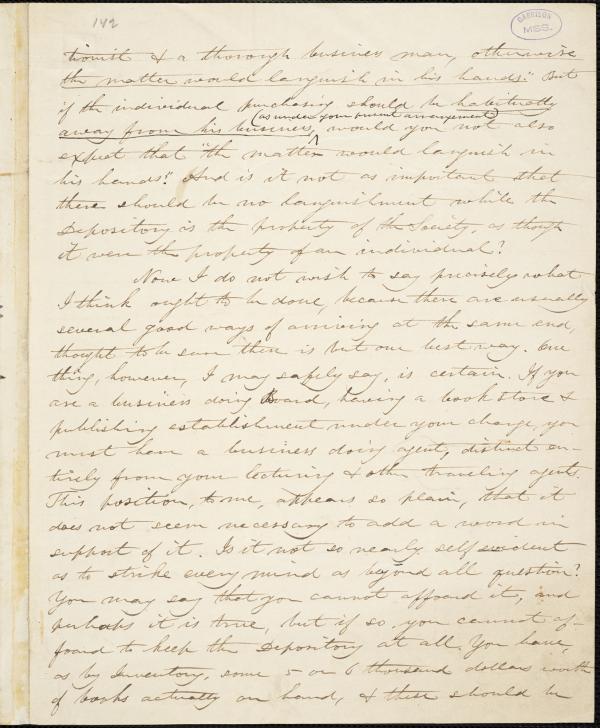 142
GARRISON
MSS.
tionist & a thorough business man, otherwise
the matter would languish in his hands." But
if the individual purchasing should be habitually
(as under your present arrangement)
away from his business, would you not also
expect that "the matter would languish in
his hands". And is it not as important that
there should be no languishment while the
Depository is the property of the Society, as though
it were the property of an individual?
Now I do not wish to say precisely what
I think ought to be done, because there are usually
several good ways of arriving at the same end,
thought to be sure there is but one best way. One
thing, however, I may safely say, is certain. If you
are a business doing Board, having a book store &
publishing establishment under your charge, you
must have a business doing agent, distinct en-
tirely from your lecturing & other traveling agents.
This position, to me, appears so plain, that it
does not seem necessary to add a word in
support of it. Is it not so nearly self evident
as to strike every mind as beyond all question?
You may say that you cannot afford it, and
perhaps it is true, but if so, you cannot af-
foard to keep the Depository at all. You have,
as by Inventory, some 5 or 6 thousand dollars worth
of books actually on hand, & there should be